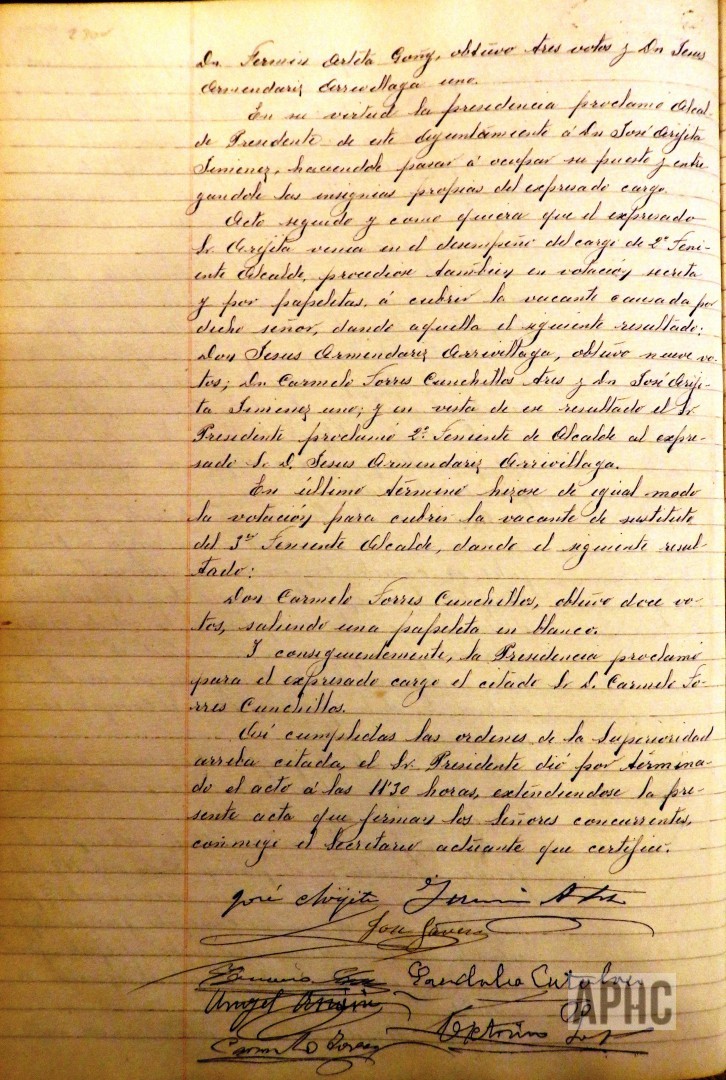 Dn. Fermin Arteta Goñi, obtuvo tres votos y Dn Jesus
Armendariz Arrivillaga uno.
En su virtud la presidencia proclamó Alcal-
de Presidente de este Ayuntamiento á Dn José Arijita
Jimenez, haciendole pasar á ocupar su puesto y entre
gandole las insignias propias del expresado cargo.
Acto seguido y como quiera que el expresado
Sr. Arijita venia en el desempeño del cargo de 2º Teni-
ente Alcalde, procediose tambien en votación secreta
y por papeletas, á cubrir la vacante causada por
dicho señor, dando aquella el siguiente resultado:
Don Jesus Armendariz Arrivillaga, obtuvo nueve vo-
tos; Dn Carmelo Torres Cunchillos tres y Dn José Ariji-
ta Jimenez uno; y en vista de ese resultado el Sr.
Presidente proclamó 2º Teniente de Alcalde al expre-
sado Sr. D. Jesus Armendariz Arrivillaga.
En último término hizose de igual modo
la votación para cubrir la vacante de sustituto
del 3er Teniente Alcalde, dando el siguiente resul-
tado:
Don Carmelo Torres Cunchillos, obtuvo doce vo-
tos, saliendo una papeleta en blanco.
Y consiguientemente, la Presidencia proclamó
para el expresado cargo el citado Sr. D. Carmelo To-
rres Cunchillos.
Asi cumplictas las ordenes de la Superioridad
arriba citada, el Sr. Presidente dió por termina-
do el acto á las 11'30 horas, extendiendose la pre-
sente acta que firman los Señores concurrentes,
conmigo el Secretario actuante que certifico.
José Arijita
Jose
Angel
APHC